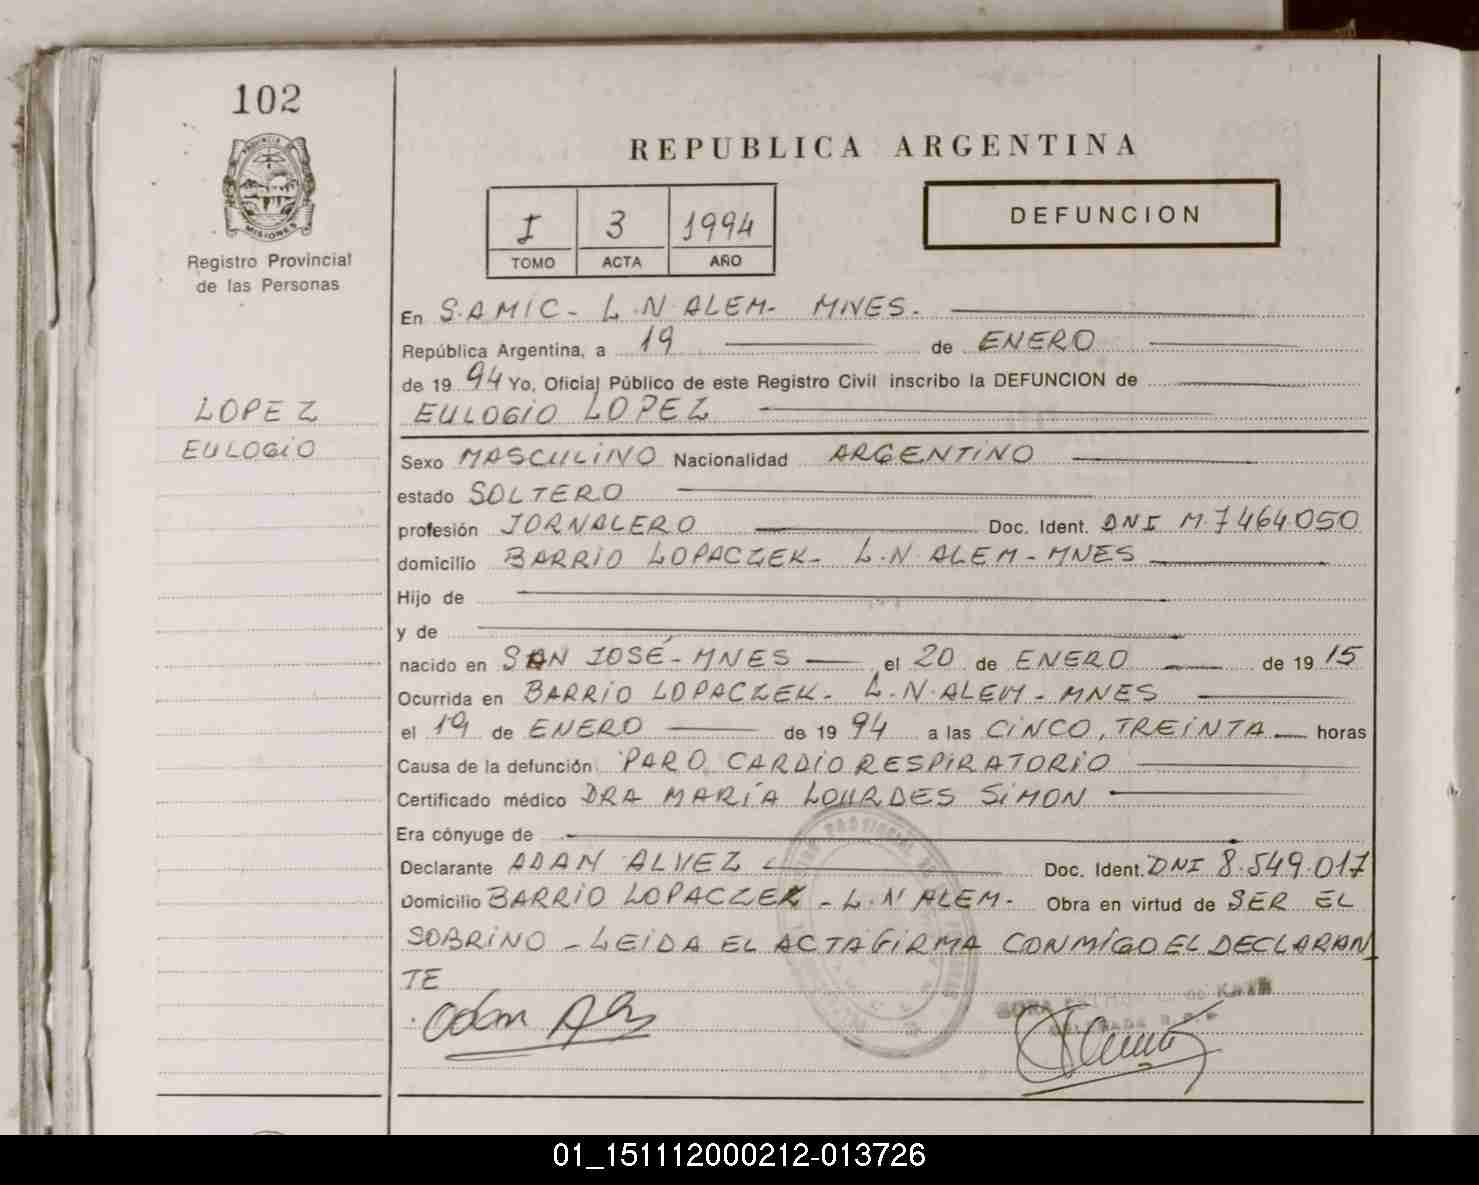 102
PROVINCIA DE
MISIONES
Registro Provincial
de las Personas
LOPEZ
EULOGIO
REPUBLICA ARGENTINA
I 3 1994
TOMO ACTA AÑO
DEFUNCION
En S.AMIC- L.N ALEM- MNES.
República Argentina, a 19 de ENERO
de 1994 Yo, Oficial Público de este Registro Civil inscribo la DEFUNCION de
EULOGIO LOPEZ
Sexo MASCULINO Nacionalidad ARGENTINO
estado SOLTERO
profesión JORNALERO Doc. Ident. DNI M.7464.050
domicilio BARRIO LOPACZEK- L.N ALEM- MNES
Hijo de
y de
nacido en SAN JOSÉ-MNES el 20 de ENERO de 1915
Ocurrida en BARRIO LOPACZEK- L.N.ALEM- MNES
el 19 de ENERO de 1994 a las CINCO, TREINTA horas
Causa de la defunción PARO CARDIORESPIRATORIO
Certificado médico DRA MARÍA LOURDES SIMON
Era cónyuge de
Declarante ADAN ALVEZ Doc. Ident. DNI 8.549.017
Domicilio BARRIO LOPACZEK - L.N ALEM- Obra en virtud de SER EL
SOBRINO - LEIDA EL ACTA FIRMA CONMIGO EL DECLARAN
TE
01_151112000212-013726